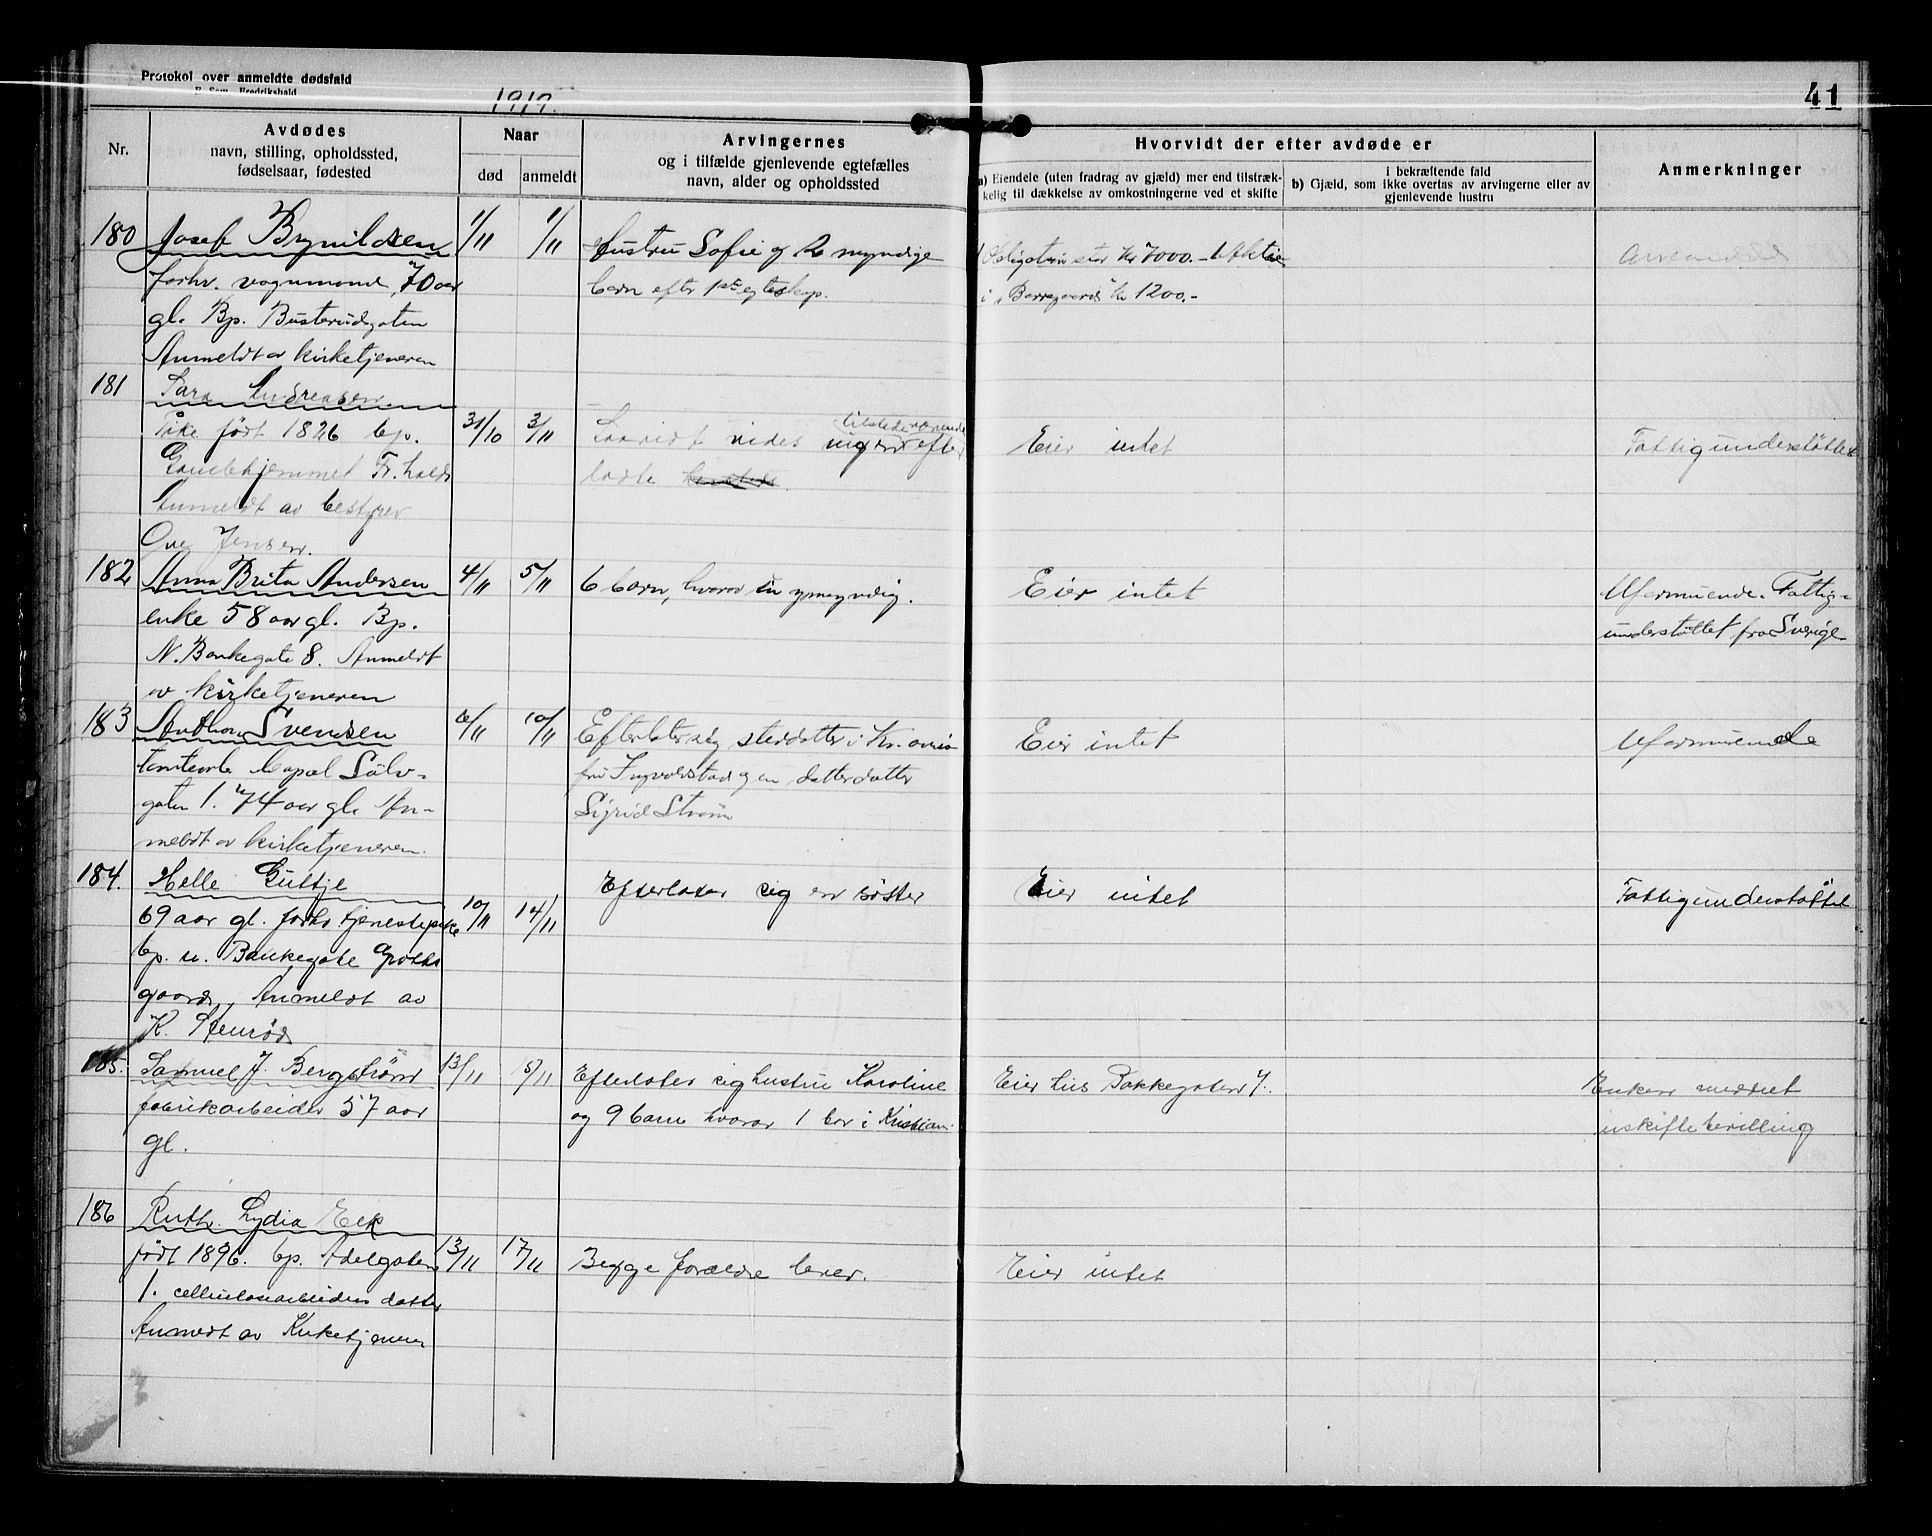 Protokol over anmeldte dødsfald
41
Nr.
Avdødes
navn, stilling, opholdssted,
fødselsaar, fødested
Naar
død
anmeldt
Arvingernes
og i tilfælde gjenlevende egtefælles
navn, alder og opholdssted
Hvorvidt der efter avdøde er
a) Eiendele (uten fradrag av gjæld) mer end tilstræk-
kelig til dækkelse av omkostningerne ved et skifte
i bekræftende fald
b) Gjæld, som ikke overtas av arvingerne eller av
gjenlevende hustru
Anmerkninger
180
Josef Brynildsen
forhv. vognmand, 70 aar
gl. Bp. Busterudgaten
Anmeldt av kirketjeneren
1/11
1/11
Hustru Sofie og 2 myndige
barn efter 1ste egteskap.
1 Obligation stor kr 7000.- 1 Aktie
i "Borregaard" kr 1200.-
181
Sara Andreasen
født 1826 bp.
Gamlehjemmet Fr.hald
Anmeldt av bestyrer
Ove Jensen.
31/10
3/11
Saavidt vides ingen efter
tilstedeværende
ladte
Eier intet
Fattigunderstøttet
182
Anna Brita Andersen
enke 58 aar gl. Bp.
N. Bankegate 8. Anmeldt
av kirketjeneren
4/11
5/11
6 barn, hvorav en umyndig.
Eier intet
Uformuende. Fattig-
understøttet fra Sverige
183
Anthon Svendsen
Sølv-
gaten 1. 74 aar gl. An-
meldt av kirketjeneren.
6/11
10/11
Efterlater sig steddatter i Kr.ania
fru Ingvaldstad og en datterdatter
Sigrid Strøm
Eier intet
Uformuende
184.
Helle Gultje
69 aar gl. forhv. tjenestepike
bp. n. Bankegate Grotts
gaard, Anmeldt av
K. Stenrød
10/11
14/11
Efterlater sig en søster
Eier intet
Fattigunderstøttet
185.
Samuel J. Bergstrøm
fabrikarbeider 57 aar
gl.
13/11
5/11
Efterlater sig hustru Karoline
og 9 barn hvorav 1 bor i Kristiania
Eier hus Bakkegaten 7.
Enken meddelt
uskiftebevilling
186
Ruth Lydia Eek
født 1896. bp. Adelgaten
1. cellulosearbeiders datter
Anmeldt av Kirketjeneren
13/11
17/11
Begge forældre lever.
Eier intet